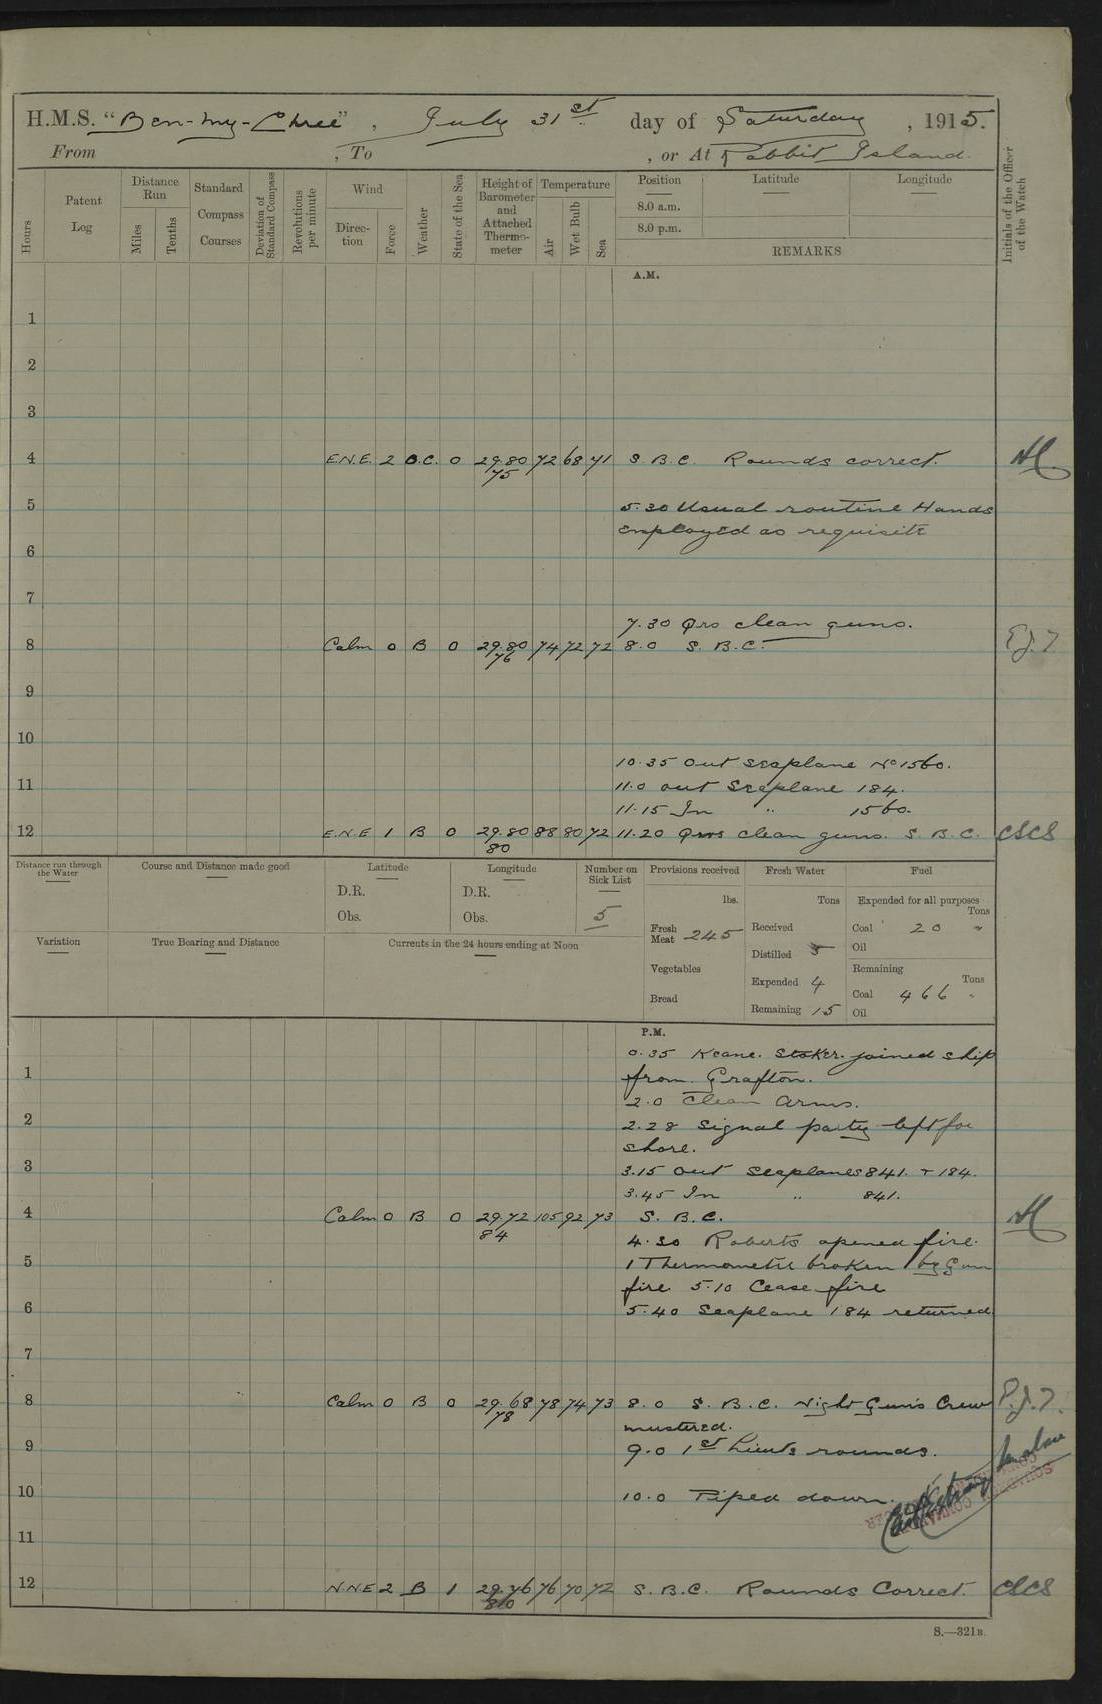 H.M.S. "Ben-my-Chree", July 31st day of Saturday, 1915.
From , To , or At Rabbit Island.
Hours
Patent Log
Distance Run
Miles
Tenths
Standard Compass Courses
Deviation of Standard Compass
Revolutions per minute
Wind
Direction
Force
Weather
State of the Sea
Height of Barometer and Attached Thermometer
Temperature
Air
Wet Bulb
Sea
Position
8.0 a.m.
8.0 p.m.
Latitude
Longitude
REMARKS
Initials of the Officer of the Watch
A.M.
1
2
3
4 E.N.E. 2 B.C. 0 29.80 72 68 71 S. B.C. Rounds correct.
75
5 5.30 Usual routine Hands
employed as requisite
6
7
7.30 Qrs clean guns.
8 Calm 0 B 0 29.80 74 72 72 8.0 S. B.C.
76
9
10
10.35 Out seaplane No 1560.
11 11.0 out Seaplane 184.
11.15 In " 1560.
12 E.N.E 1 B 0 29.80 88 80 72 11.20 Qrs clean guns. S. B. C. CSCS
80
Distance run through the Water
Course and Distance made good
Latitude
D.R.
Obs.
Longitude
D.R.
Obs.
Number on Sick List
5
Provisions received
lbs.
Fresh Meat 245
Vegetables
Bread
Fresh Water
Tons
Received
Distilled 5
Expended 4
Remaining 15
Fuel
Expended for all purposes
Tons
Coal 20 "
Oil
Remaining
Tons
Coal 466 "
Oil
Variation
True Bearing and Distance
Currents in the 24 hours ending at Noon
P.M.
0.35 Keane. Stoker. joined ship
1 from Grafton.
2.0 Clean Arms.
2 2.28 Signal party left for
shore.
3 3.15 Out Seaplanes 841. + 184.
3.45 In " 841.
4 Calm 0 B 0 29.72 105 92 73 S. B.C.
84
4.30 Roberts opened fire.
5 1 Thermometer broken by Gun
fire 5.10 Cease fire
6 5.40 Seaplane 184 returned
7
8 Calm 0 B 0 29.68 78 74 73 8.0 S. B.C. Night Gun's Crew
78
mustered.
9 9.0 1st Lieuts rounds.
10 10.0 Piped down.
11
12 NNE 2 B 1 29.76 76 70 72 S.B.C. Rounds Correct. CSCS
80
S.—321B.